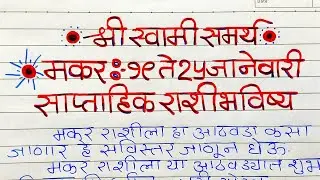 श्री स्वामी समर्थ
मकर:१९ ते २५ जानेवारी
साप्ताहिक राशीभविष्य
मकर राशीला हा आठवडा कसा
जाणार हे सविस्तर जाणून घेऊ.
मकर राशीला या आठवड्यात शुभ